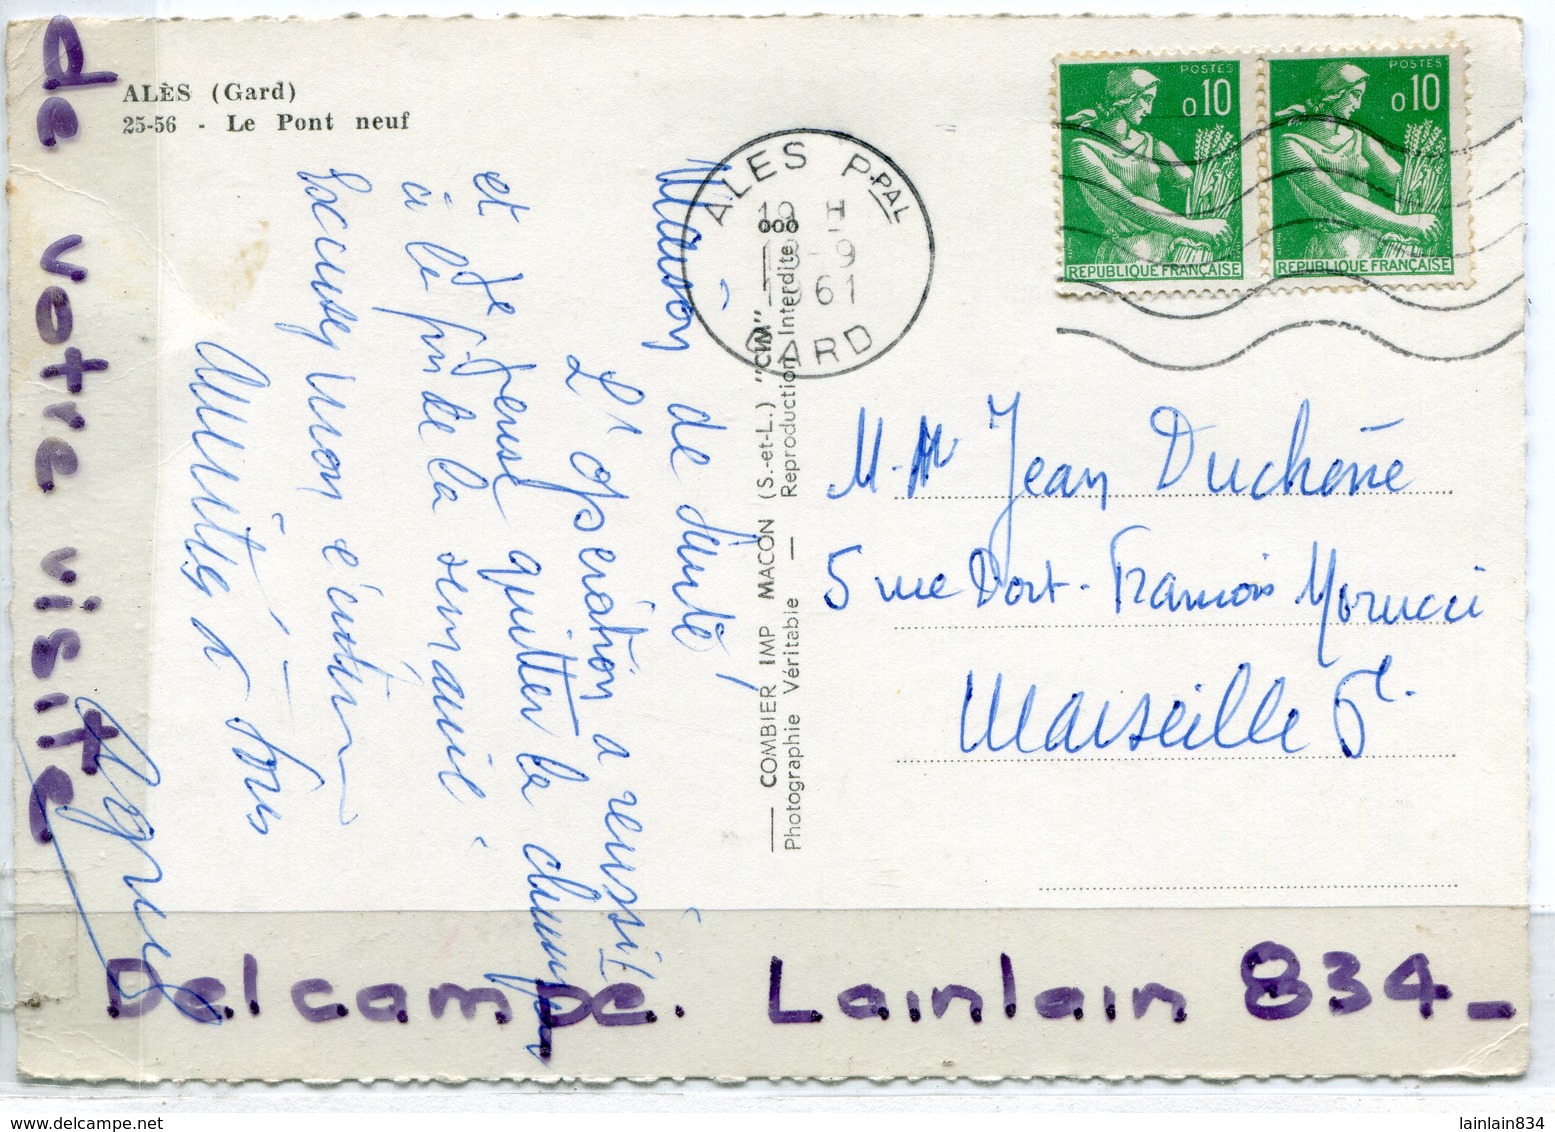 ALÈS (Gard)
25-56 - Le Pont neuf
Maison de Santé !
L'opération a réussi !
et je pense quitter la
à la fin de la semaine.
Excusez mon
Amitiés à Tous
de votre visite
ALES P.PAL
GARD
19 H
-9
1961
POSTES
0,10
REPUBLIQUE FRANÇAISE
POSTES
0,10
REPUBLIQUE FRANÇAISE
— COMBIER IMP MACON (S.-et-L.) "CIM"
Photographie Véritable — Reproduction Interdite
Jean Duchêne
5 rue Fort-François Morucci
Marseille
Delcampe. Lainlain 834_
www.delcampe.net
lainlain834